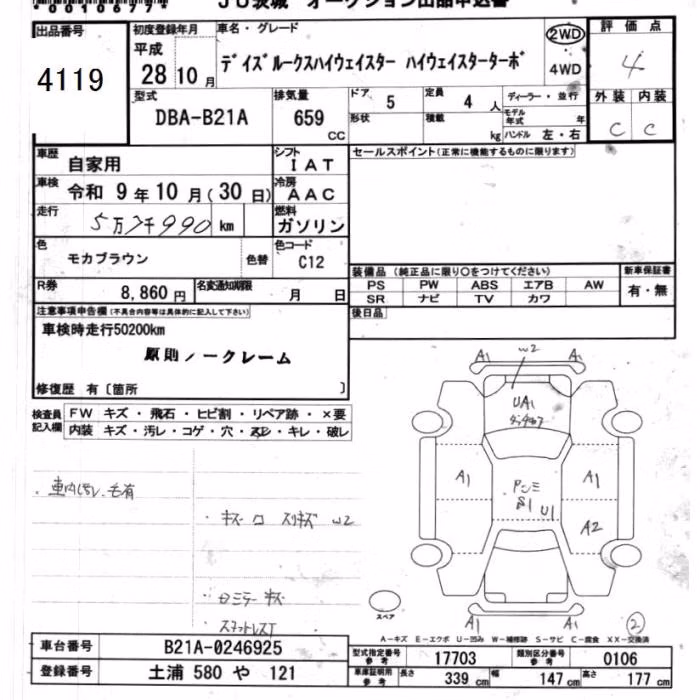 *0010677*
JU茨城 オークション出品申込書
出品番号
4119
初度登録年月
平成
28年10月
車名・グレード
デイズルークスハイウェイスター ハイウェイスターターボ
2WD
4WD
評価点
4
外装 内装
C C
型式
DBA-B21A
排気量
659
CC
ドア 5
定員 4 人
ディーラー・並行
形状
積載 kg
モデル年式 年
ハンドル 左・右
車歴
自家用
シフト
IAT
セールスポイント(正常に機能するものに限ります)
車検
令和 9年10月(30日)
冷房
AAC
走行
km
燃料
ガソリン
色
モカブラウン
色替
色コード
C12
装備品 (純正品に限り○をつけてください)
新車保証書
PS PW ABS エアB AW
有・無
SR ナビ TV カワ
R券
8,860円
名変通知期限
月 日
後日品
注意事項申告欄(不具合内容等は具体的に記入して下さい)
車検時走行50200km
原則ノークレーム
修復歴 有〔箇所 〕
検査員記入欄
FW キズ・飛石・ヒビ割・リペア跡・×要
内装 キズ・汚レ・コゲ・穴・スレ・キレ・破レ
A1 W2 A1
UA1
A1 A1
A2
S1 U1
・車内汚レ、毛有
スペア
A1 A1
②
A-キズ E-エクボ U-凹み W-補修跡 S-サビ C-腐食 XX-交換済
車台番号
B21A-0246925
型式指定番号参考
17703
類別区分番号参考
0106
登録番号
土浦 580 や 121
車庫証明用参考
長さ 339 cm
幅 147 cm
高さ 177 cm